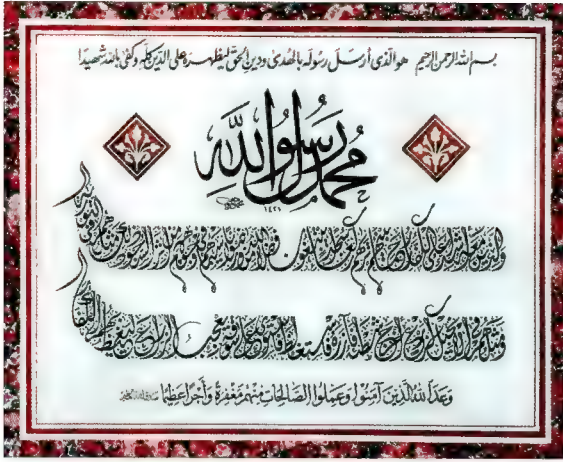 بسم الله الرحمن الرحيم هو الذى أرسل رسوله بالهدى ودين الحق ليظهره على الدين كله وكفى بالله شهيدا
محمد رسول الله
١٤٢١
والذين معه أشداء على الكفار رحماء بينهم تراهم ركعا سجدا يبتغون فضلا من الله ورضوانا سيماهم في وجوههم من أثر السجود ذلك مثلهم في التوراة
ومثلهم في الإنجيل كزرع أخرج شطأه فآزره فاستغلظ فاستوى على سوقه يعجب الزراع ليغيظ بهم الكفار
وَعَدَ اللهُ الَّذِينَ آمَنُوا وَعَمِلُوا الصَّالِحَاتِ مِنْهُمْ مَغْفِرَةً وَأَجْرًا عَظِيمًا